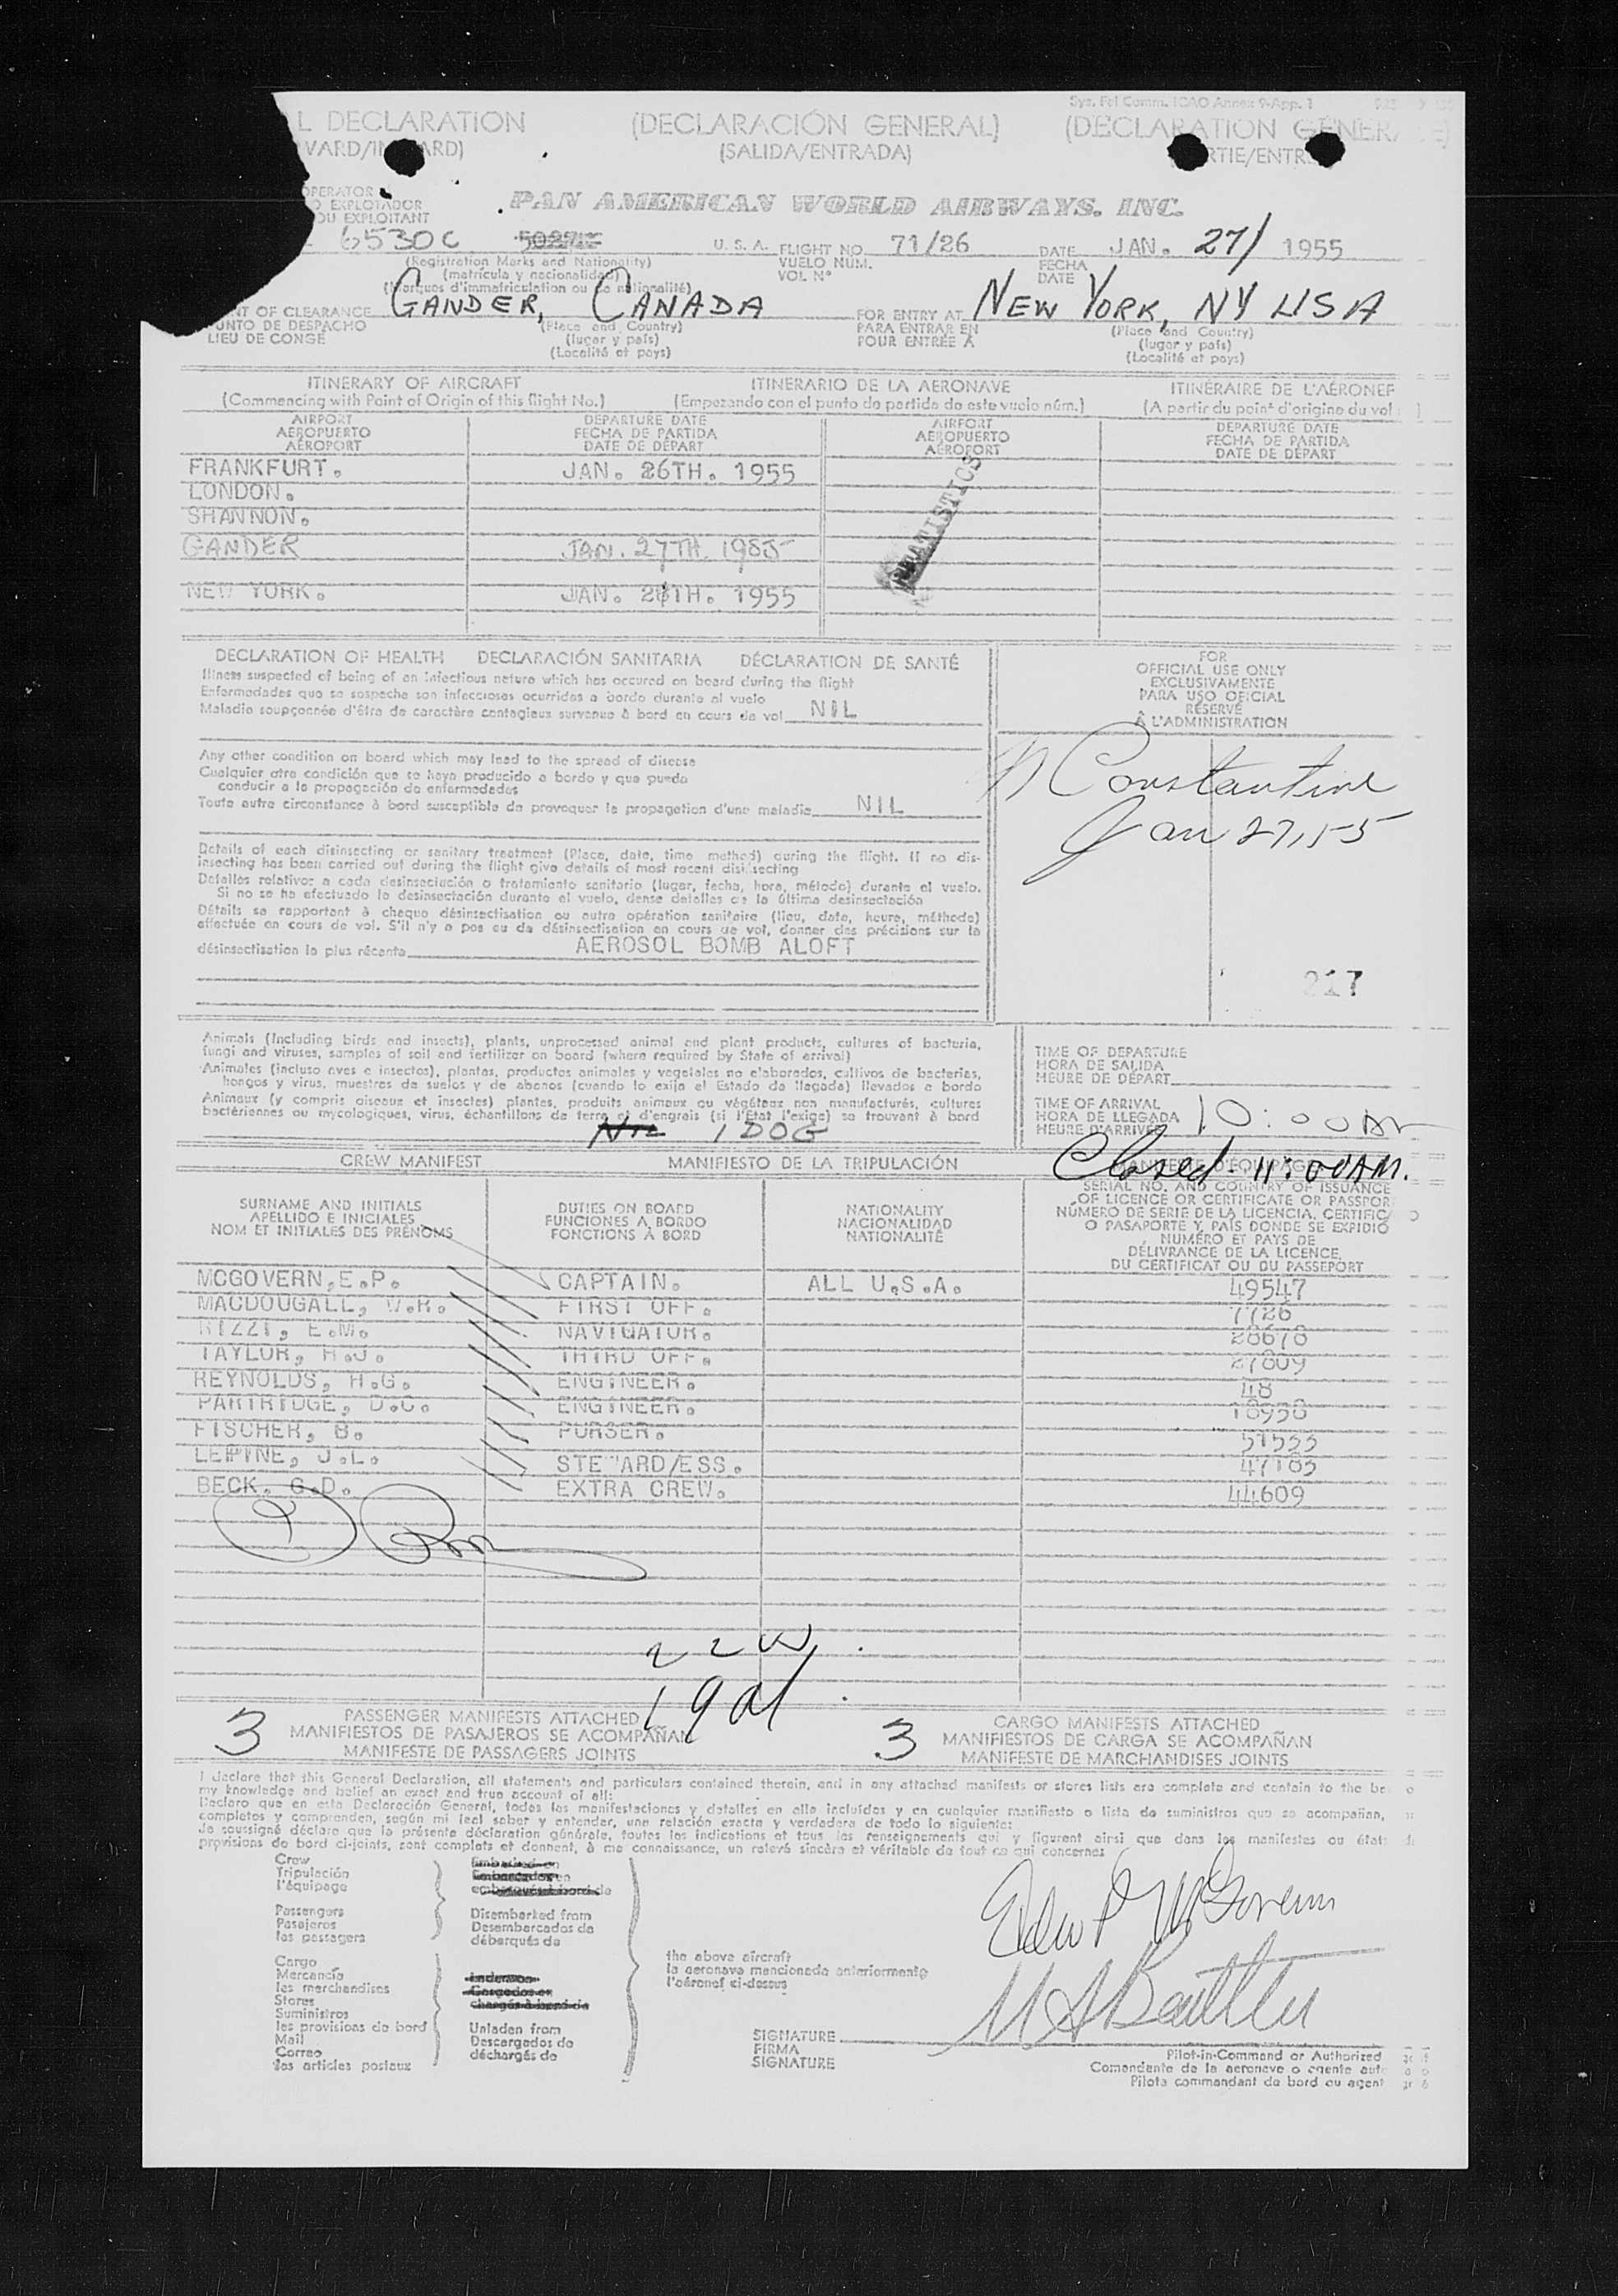 Sys. Fol Comm. ICAO Annex 9-App. 1
L DECLARATION (DECLARACIÓN GENERAL) (DECLARATION GENER
VARD/IN ARD) (SALIDA/ENTRADA) RTIE/ENTR
OPERATOR
O EXPLOTADOR
OU EXPLOITANT
PAN AMERICAN WORLD AIRWAYS, INC.
6530C U. S. A. FLIGHT NO. 71/26 DATE JAN. 27/ 1955
VUELO NUM. FECHA
VOL Nº DATE
(Registration Marks and Nationality)
(matrícula y nacionalidad)
(Marques d'immatriculation ou de nationalité)
NT OF CLEARANCE GANDER, CANADA FOR ENTRY AT NEW YORK, NY USA
UNTO DE DESPACHO (Place and Country) PARA ENTRAR EN (Place and Country)
LIEU DE CONGE (lugar y país) POUR ENTRÉE À (lugar y país)
(Localité et pays) (Localité et pays)
ITINERARY OF AIRCRAFT ITINERARIO DE LA AERONAVE ITINÉRAIRE DE L'AÉRONEF
(Commencing with Point of Origin of this flight No.) (Empezando con el punto de partida de este vuelo núm.) (A partir du point d'origine du vol )
AIRPORT DEPARTURE DATE AIRPORT DEPARTURE DATE
AEROPUERTO FECHA DE PARTIDA AEROPUERTO FECHA DE PARTIDA
AÉROPORT DATE DE DÉPART AÉROPORT DATE DE DÉPART
FRANKFURT. JAN. 26TH. 1955
LONDON.
SHANNON.
GANDER JAN. 27TH. 1955
NEW YORK. JAN. 2TH. 1955
STATISTICS
DECLARATION OF HEALTH DECLARACIÓN SANITARIA DÉCLARATION DE SANTÉ
Illness suspected of being of an infectious nature which has occured on board during the flight
Enfermedades que se sospeche son infecciosas ocurridas a bordo durante el vuelo
Maladie soupçonnée d'être de caractère contagieux survenue à bord en cours de vol NIL
FOR
OFFICIAL USE ONLY
EXCLUSIVAMENTE
PARA USO OFICIAL
RÉSERVÉ
À L'ADMINISTRATION
Any other condition on board which may lead to the spread of disease
Cualquier otra condición que se haya producido a bordo y que pueda
conducir a la propagación de enfermedades
Toute autre circonstance à bord susceptible de provoquer la propagation d'une maladie NIL
N Constantine
Jan 27, 55
Details of each disinsecting or sanitary treatment (Place, date, time method) during the flight. If no dis-
insecting has been carried out during the flight give details of most recent disinsecting
Detalles relativos a cada desinsectación o tratamiento sanitario (lugar, fecha, hora, método) durante el vuelo.
Si no se ha efectuado la desinsectación durante el vuelo, dense detalles de la última desinsectación
Détails se rapportant à chaque désinsectisation ou autre opération sanitaire (lieu, date, heure, méthode)
effectuée en cours de vol. S'il n'y a pas eu de désinsectisation en cours de vol, donner des précisions sur la
désinsectisation la plus récente AEROSOL BOMB ALOFT
217
Animals (Including birds and insects), plants, unprocessed animal and plant products, cultures of bacteria,
fungi and viruses, samples of soil and fertilizer on board (where required by State of arrival)
Animales (incluso aves e insectos), plantas, productos animales y vegetales no elaborados, cultivos de bacterias,
hongos y virus, muestras de suelos y de abonos (cuando lo exija el Estado de llegada) llevados a bordo
Animaux (y compris oiseaux et insectes) plantes, produits animaux ou végétaux non manufacturés, cultures
bactériennes ou mycologiques, virus, échantillons de terre et d'engrais (si l'État l'exige) se trouvant à bord
NIL 1 DOG
TIME OF DEPARTURE
HORA DE SALIDA
HEURE DE DÉPART
TIME OF ARRIVAL
HORA DE LLEGADA 10:00 AM
HEURE D'ARRIVÉE
Closed 11:00 AM.
CREW MANIFEST MANIFIESTO DE LA TRIPULACIÓN
SURNAME AND INITIALS DUTIES ON BOARD NATIONALITY
APELLIDO E INICIALES FUNCIONES A BORDO NACIONALIDAD
NOM ET INITIALES DES PRÉNOMS FONCTIONS À BORD NATIONALITÉ
SERIAL NO. AND COUNTRY OF ISSUANCE
OF LICENCE OR CERTIFICATE OR PASSPOR
NÚMERO DE SERIE DE LA LICENCIA, CERTIFIC
O PASAPORTE Y PAÍS DONDE SE EXPIDIÓ
NUMÉRO ET PAYS DE
DÉLIVRANCE DE LA LICENCE,
DU CERTIFICAT OU DU PASSEPORT
MCGOVERN, E.P. CAPTAIN. ALL U.S.A. 49547
MACDOUGALL, W.R. FIRST OFF. 7726
RIZZI, E.M. NAVIGATOR. 28678
TAYLOR, H.J. THIRD OFF. 27809
REYNOLDS, H.G. ENGINEER. 48
PARTRIDGE, D.C. ENGINEER. 18958
FISCHER, B. PURSER. 51533
LEPINE, J.L. STEWARD/ESS. 47185
BECK, G.D. EXTRA CREW. 44609
22W
19 al
3 PASSENGER MANIFESTS ATTACHED 3 CARGO MANIFESTS ATTACHED
MANIFIESTOS DE PASAJEROS SE ACOMPAÑAN MANIFIESTOS DE CARGA SE ACOMPAÑAN
MANIFESTE DE PASSAGERS JOINTS MANIFESTE DE MARCHANDISES JOINTS
I declare that this General Declaration, all statements and particulars contained therein, and in any attached manifests or stores lists are complete and contain to the be
my knowledge and belief an exact and true account of all:
Declaro que en esta Declaración General, todas las manifestaciones y detalles en ella incluídos y en cualquier manifiesto o lista de suministros que se acompañan,
completos y comprenden, según mi leal saber y entender, una relación exacta y verdadera de todo lo siguiente:
Je soussigné déclare que la présente déclaration générale, toutes les indications et tous les renseignements qui y figurent ainsi que dans les manifestes ou état
provisions de bord ci-joints, sont complets et donnent, à ma connaissance, un relevé sincère et véritable de tout ce qui concerne:
Crew Embarked on
Tripulación Embarcados en
l'équipage embarqués à bord de
Passengers Disembarked from
Pasajeros Desembarcados de
les passagers débarqués de
Cargo
Mercancía
les merchandises
Stores
Suministros
les provisions de bord
Mail
Correo
les articles postaux
Laden on
Cargados en
chargés à bord de
Unladen from
Descargados de
déchargés de
the above aircraft
la aeronave mencionada anteriormente
l'aéronef ci-dessus
Edw P McGovern
SIGNATURE
FIRMA
SIGNATURE
Pilot-in-Command or Authorized
Comandante de la aeronave o agente aut
Pilote commandant de bord ou agent